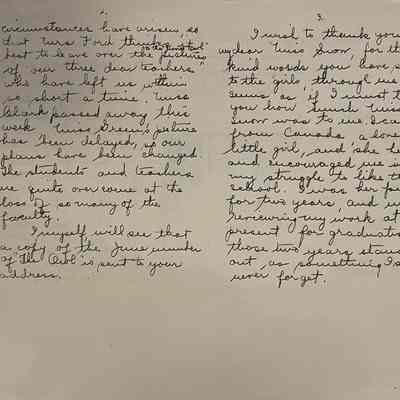 2.
circumstances have arisen, so
that Mrs Ford thinks it
best to leave over the pictures
of our three dear teachers
who have left us within
so short a time. Miss
Clark passed away this
week Miss Green's picture
has been delayed, so our
plans have been changed.
The students and teachers
are quite overcome at the
loss of so many of the
faculty.
I myself will see that
a copy of the June number
of "The Owl" is sent to your
address.
3.
I wish to thank you
my dear Miss Snow, for th
kind words you have s
to the girls, through us
seems as if I must t
you how much Miss
Snow was to me. I ca
from Canada a lone
little girl, and she he
and encouraged me i
my struggle to like th
school. I was her pu
for two years, and w
reviewing my work at
present for graduatio
those two years stan
out as something I s
never forget.